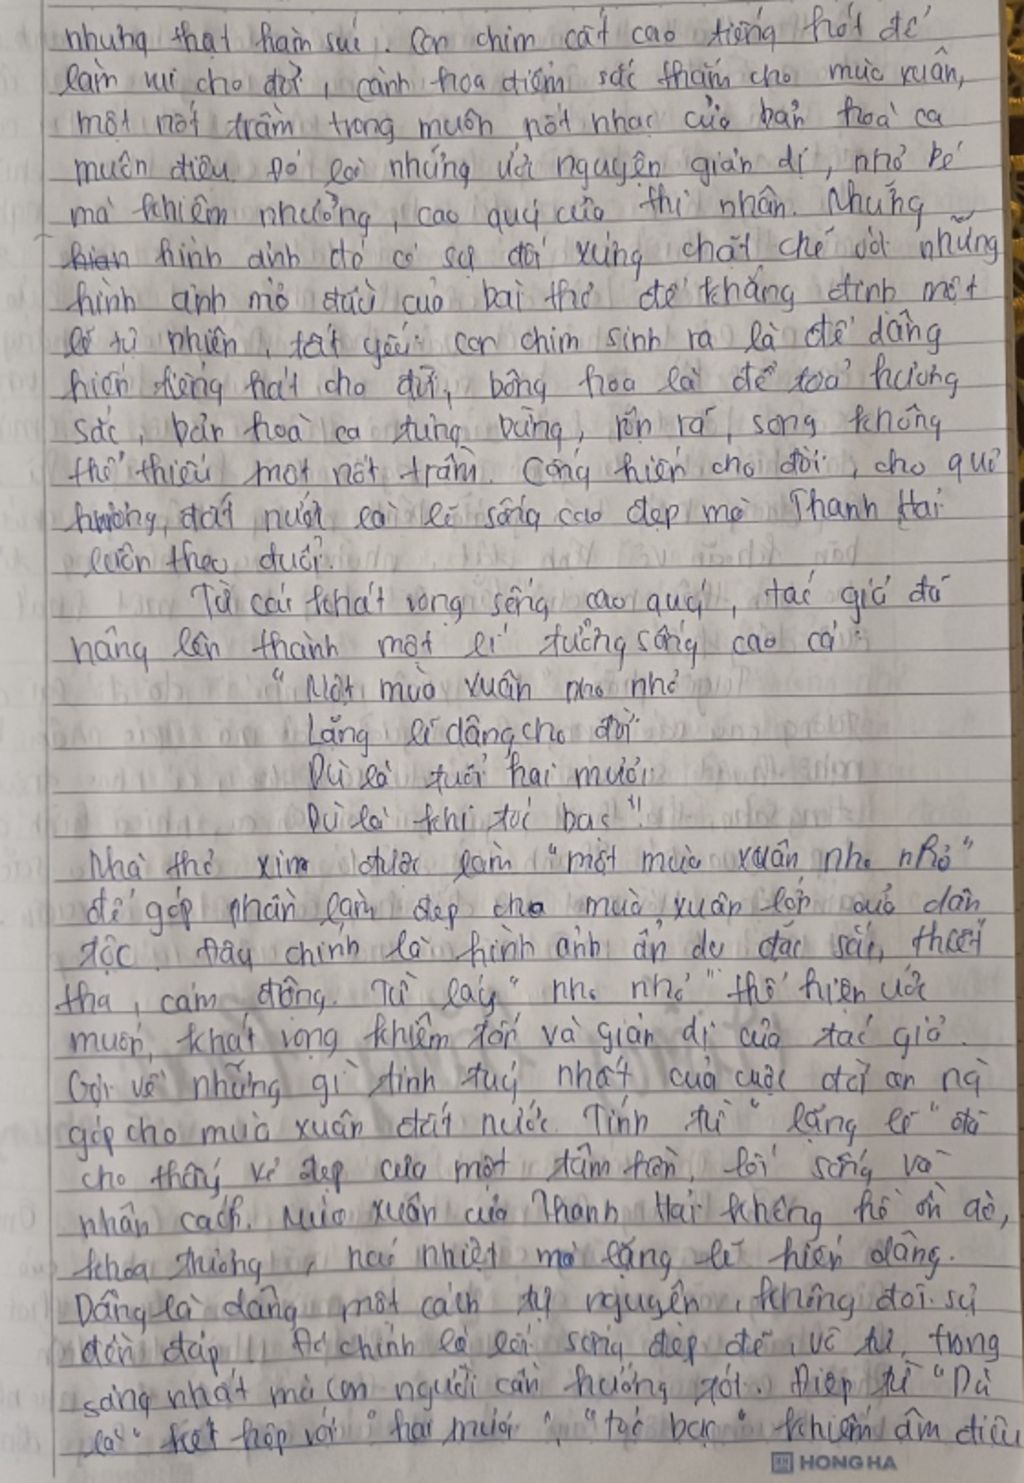 nhưng thật hàm súc. Con chim cất cao tiếng hót để
làm vui cho đời, cành hoa điểm sắc thắm cho mùa xuân,
một nốt trầm trong muôn nốt nhạc của bản hoà ca
muôn điệu. Đó là những ước nguyện giản dị, nhỏ bé
mà khiêm nhường, cao quý của thi nhân. Những
hình ảnh đó có sự đối xứng chặt chẽ với những
hình ảnh mở đầu của bài thơ để khẳng định một
lẽ tự nhiên, tất yếu: con chim sinh ra là để dâng
hiến tiếng hát cho đời, bông hoa là để toả hương
sắc, bản hoà ca tưng bừng, rộn rã, song không
thể thiếu một nốt trầm. Cống hiến cho đời, cho quê
hương, đất nước là lẽ sống cao đẹp mà Thanh Hải
luôn theo đuổi.
Từ cái khát vọng sống cao quý, tác giả đã
nâng lên thành một lí tưởng sống cao cả:
"Một mùa xuân nho nhỏ
Lặng lẽ dâng cho đời
Dù là tuổi hai mươi
Dù là khi tóc bạc"!
Nhà thơ xin được làm "một mùa xuân nho nhỏ"
để góp phần làm đẹp cho mùa xuân lớn của dân
tộc. Đây chính là hình ảnh ẩn dụ đặc sắc, thiết
tha, cảm động. Từ láy "nho nhỏ" thể hiện ước
muốn, khát vọng khiêm tốn và giản dị của tác giả.
Gợi về những gì tinh tuý nhất của cuộc đời
góp cho mùa xuân đất nước. Tính từ "lặng lẽ" đã
cho thấy vẻ đẹp của một tâm hồn, lối sống và
nhân cách. Mùa xuân của Thanh Hải không hề ồn ào,
khoa trương, náo nhiệt mà lặng lẽ hiến dâng.
Dâng là dâng một cách tự nguyện, không đòi sự
đền đáp. Đó chính là lối sống đẹp đẽ, vô tư, trong
sáng nhất mà con người cần hướng tới. Điệp từ "Dù
là" kết hợp với "hai mươi", "tóc bạc" khiến âm điệu
HONG HA